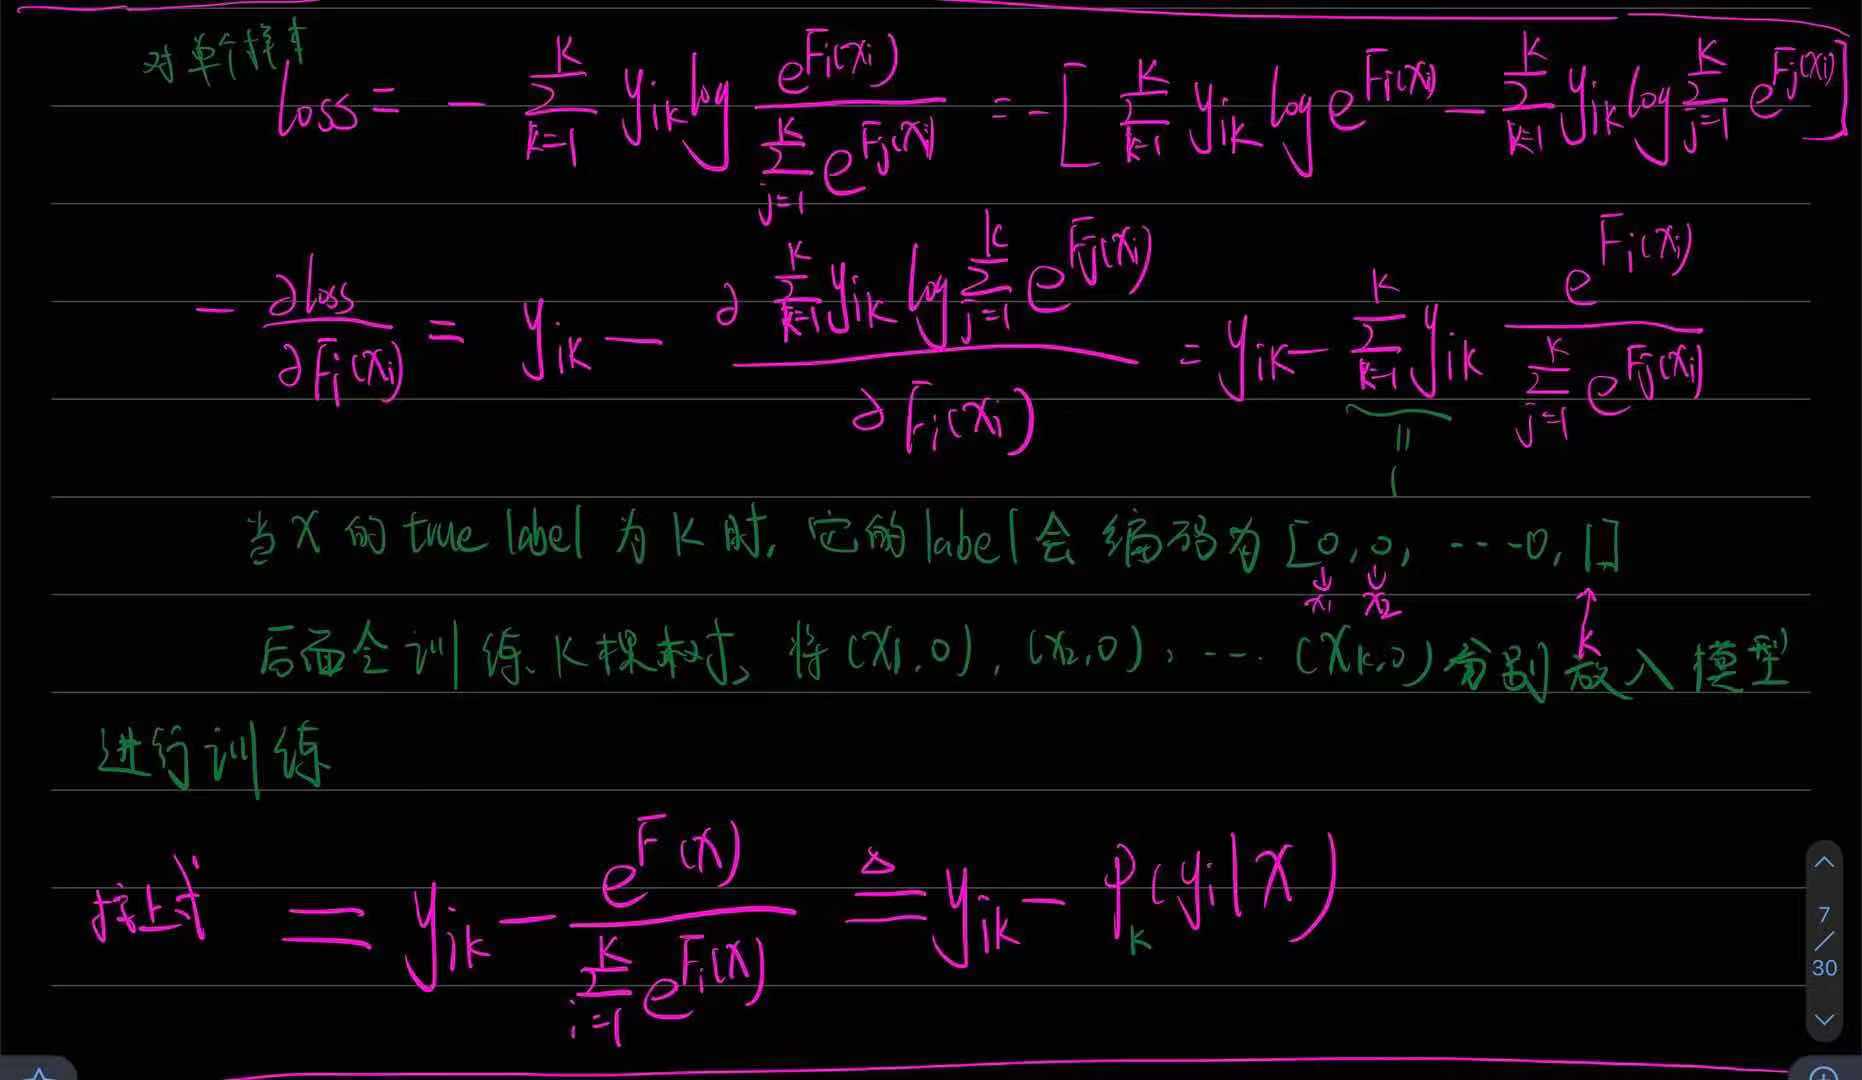 对单个样本
loss = - \sum_{k=1}^{K} y_{ik} log \frac{e^{F_i(x_i)}}{\sum_{j=1}^{K} e^{F_j(x_i)}} = - [ \sum_{k=1}^{K} y_{ik} log e^{F_i(x_i)} - \sum_{k=1}^{K} y_{ik} log \sum_{j=1}^{K} e^{F_j(x_i)} ]
- \frac{∂loss}{∂F_i(x_i)} = y_{ik} - \frac{∂ \sum_{k=1}^{K} y_{ik} log \sum_{j=1}^{K} e^{F_j(x_i)}}{∂F_i(x_i)} = y_{ik} - \sum_{k=1}^{K} y_{ik} \frac{e^{F_i(x_i)}}{\sum_{j=1}^{K} e^{F_j(x_i)}}
||
1
当 X 的 true label 为 K 时, 它的 label 会 编码为 [0, 0, ----0, 1]
↓ ↓ ↑
x_1 x_2 K
后面会训练 K 棵树, 将 (x_1, 0), (x_2, 0), ---- (x_k, 0) 分别放入模型
进行训练
接上式 = y_{ik} - \frac{e^{F(x)}}{\sum_{i=1}^{K} e^{F_i(x)}} ≜ y_{ik} - P_k(y_i|x)
7
/
30